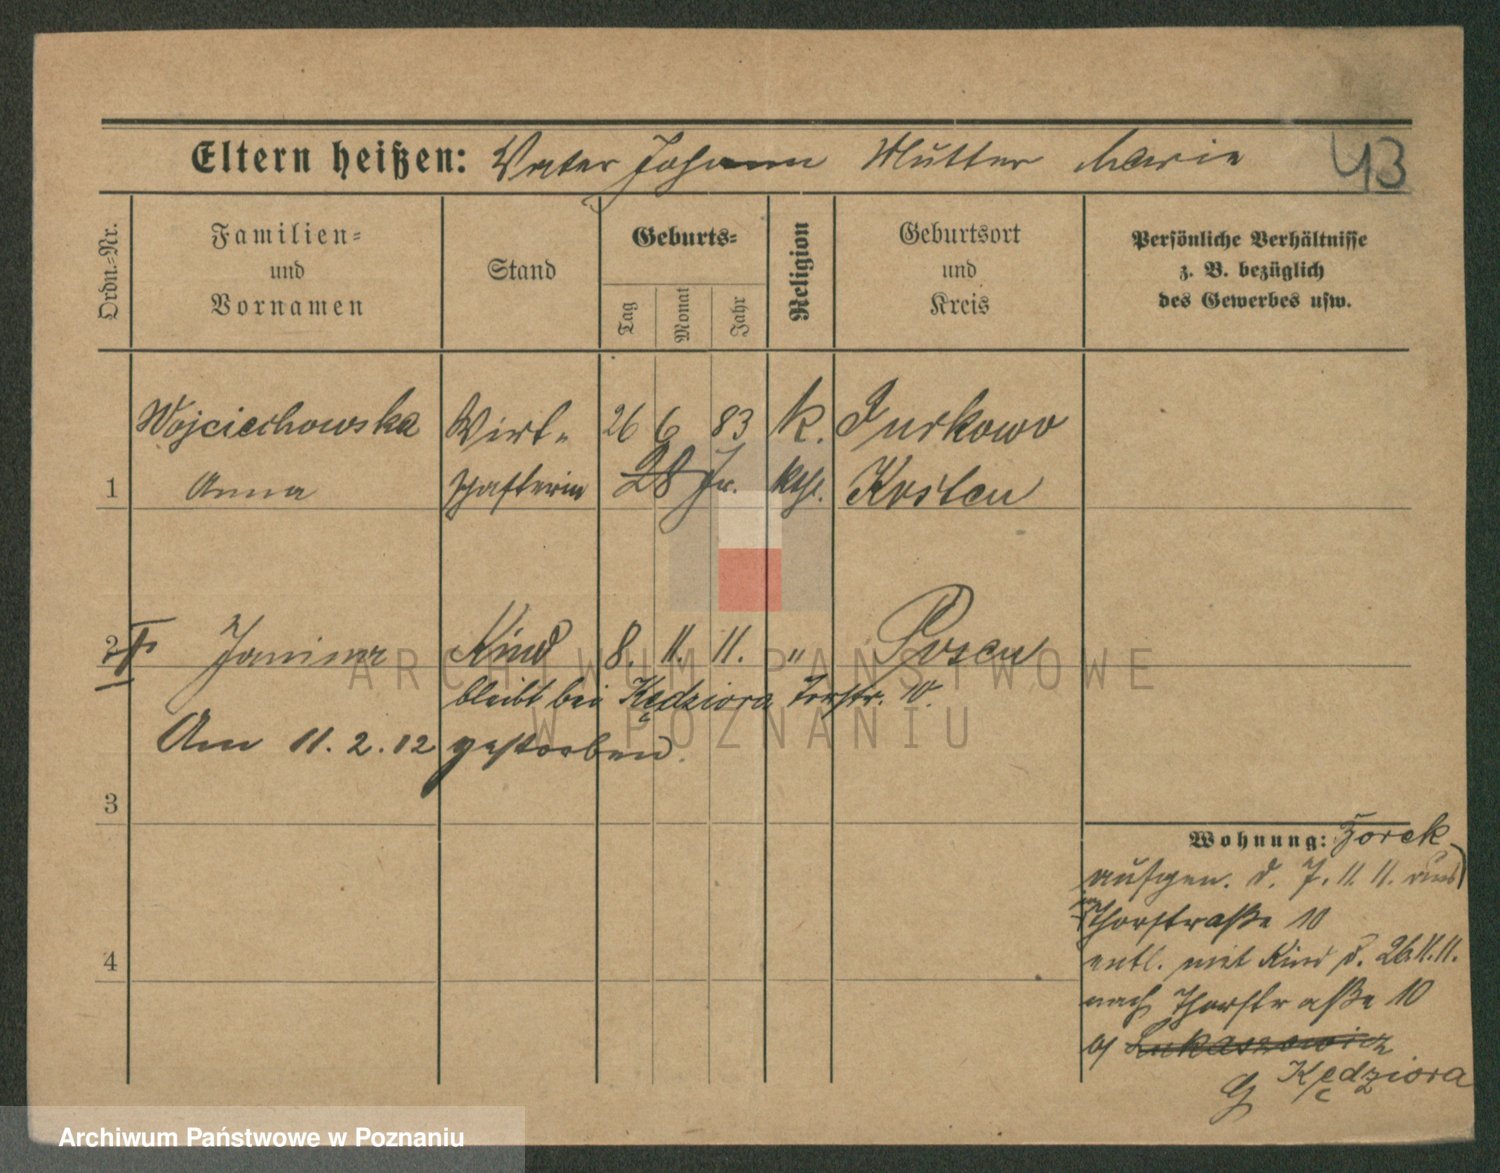 Eltern heißen: Vater Johann Mutter Marie
43
Ordn.-Nr.
Familien-
und
Vornamen
Stand
Geburts-
Tag
Monat
Jahr
Religion
Geburtsort
und
Kreis
Persönliche Verhältnisse
z. B. bezüglich
des Gewerbes usw.
Wojciechowska Wirt- 26 6 83 k. Jurkowo
1 Anna schafterin 28 J. kth. Kosten
2 Janina Kind 8. 11. 11. " Posen
bleibt bei Kędziora Torstr. 10.
Am 11.2.12 gestorben.
3
4
Wohnung:
aufgen. d. 7. 11. 11. aus
Thorstraße 10
entl. mit Kind d. 26.11.11.
nach Thorstraße 10
b/ Lukaszewicz
Kędziora
ARCHIWUM PAŃSTWOWE
W POZNANIU
Archiwum Państwowe w Poznaniu